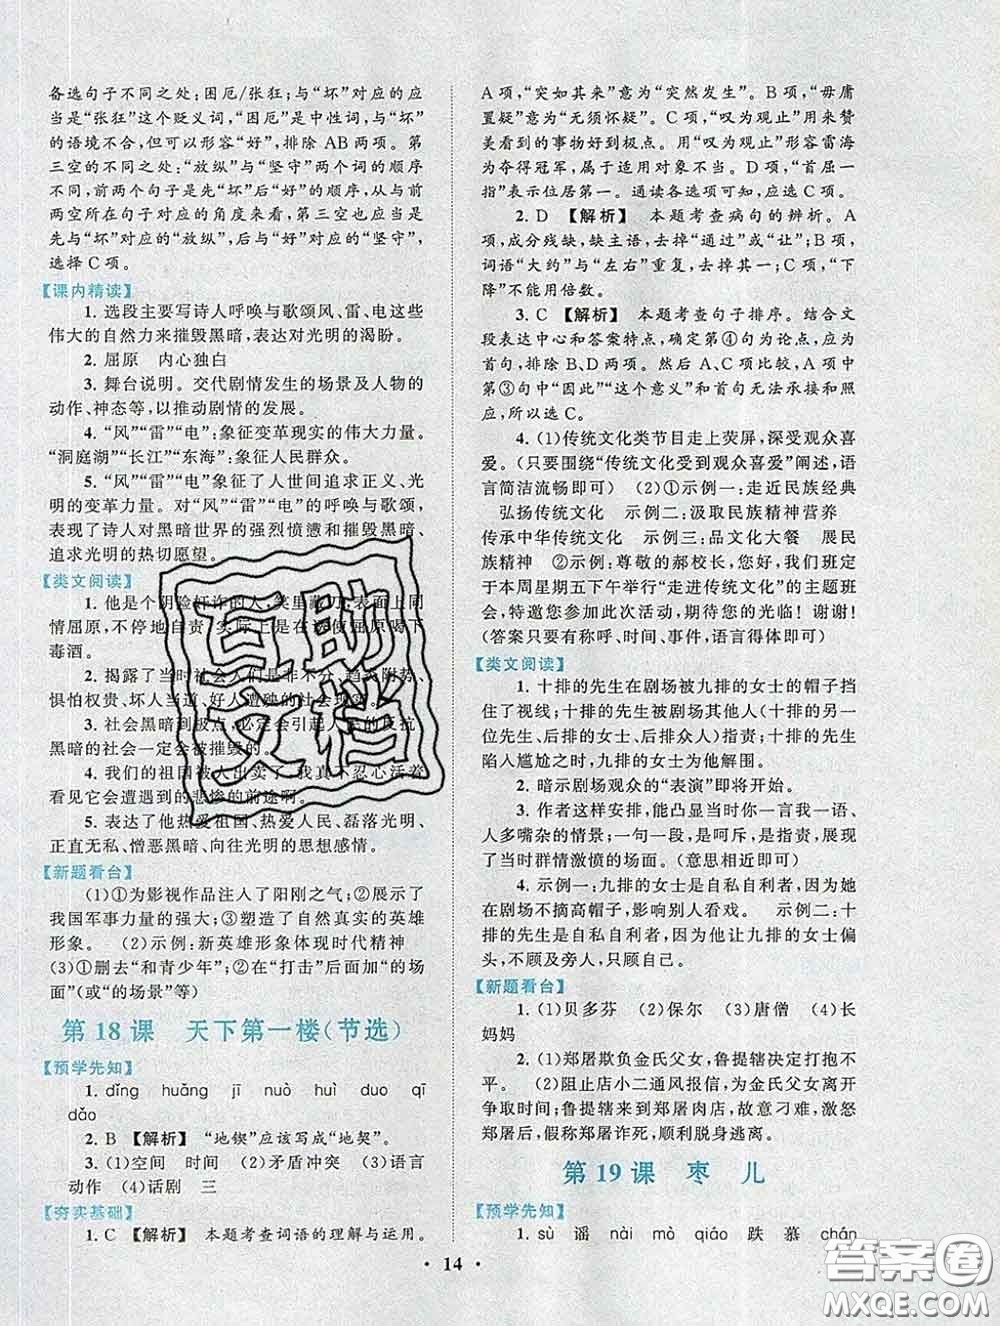 备选句子不同之处:困厄/张狂;与“坏”对应的应
当是“张狂”这个贬义词,“困厄”是中性词,与“坏”
的语境不合,但可以形容“好”,排除 AB 两项。第
三空的不同之处:“放纵”与“坚守”两个词的顺序
不同,前两个句子是先“坏”后“好”的顺序,从前
两空所在句子对应的角度来看,第三空也应当是
先与“坏”对应的“放纵”,后与“好”对应的“坚守”,
选择 C 项。
【课内精读】
1. 选段主要写诗人呼唤与歌颂风、雷、电这些
伟大的自然力来摧毁黑暗,表达对光明的渴盼。
2. 屈原 内心独白
3. 舞台说明。交代剧情发生的场景及人物的
动作、神态等,以推动剧情的发展。
4. “风”“雷”“电”:象征变革现实的伟大力量。
“洞庭湖”“长江”“东海”:象征人民群众。
5. “风”“雷”“电”象征了人世间追求正义、光
明的变革力量。对“风”“雷”“电”的呼唤与歌颂,
表现了诗人对黑暗世界的强烈愤懑和摧毁黑暗、
追求光明的热切愿望。
【类文阅读】
1. 他是个阴险奸诈的人,笑里藏刀,表面上同
情屈原,不停地自责,实际上是在诱使屈原喝下
毒酒。
2. 揭露了当时社会人们是非不分、趋炎附势、
惧怕权贵、坏人当道、好人遭殃的社会现实。
3. 社会黑暗到极点,必定会引起人民的反抗,
黑暗的社会一定会被摧毁的。
4. 我们的祖国被人出卖了,我真不忍心活着
看见它会遭遇到的悲惨的前途啊。
5. 表达了他热爱祖国、热爱人民、磊落光明、
正直无私、憎恶黑暗、向往光明的思想感情。
【新题看台】
(1)①为影视作品注入了阳刚之气;②展示了
我国军事力量的强大;③塑造了自然真实的英雄
形象。 (2)示例:新英雄形象体现时代精神
(3)①删去“和青少年”;②在“打击”后面加“的场
面”(或“的场景”等)
第 18 课 天下第一楼(节选)
【预学先知】
1. dǐng huǎng jī nuò huì duo qī
dǎo
2. B 【解析】 “地锲”应该写成“地契”。
3. (1)空间 时间 (2)矛盾冲突 (3)语言
动作 (4)话剧 三
【夯实基础】
1. C 【解析】 本题考查词语的理解与运用。
A 项,“突如其来”意为“突然发生”。B 项,“毋庸
置疑”意为“无须怀疑”。C 项,“叹为观止”用来赞
美看到的事物好到极点。用“叹为观止”形容雷海
为夺得冠军,属于适用对象不当。D 项,“首屈一
指”表示位居第一。通读各选项可知,应选 C 项。
2. D 【解析】 本题考查病句的辨析。A
项,成分残缺,缺主语,去掉“通过”或“让”;B 项,
词语“大约”与“左右”重复,去掉其一;C 项,“下
降”不能用倍数。
3. C 【解析】 本题考查句子排序。结合文
段表达中心和答案特点,确定第④句为论点,应为
首句,排除 B、D 两项。然后 A、C 项比较,A 项中
第③句中“因此”“这个意义”和首句无法承接和照
应,所以选 C。
4. (1)传统文化类节目走上荧屏,深受观众喜
爱。(只要围绕“传统文化受到观众喜爱”阐述,语
言简洁流畅即可) (2)①示例一:走近民族经典
弘扬传统文化 示例二:汲取民族精神营养
传承中华传统文化 示例三:品文化大餐 展民
族精神 ②示例:尊敬的郝校长,您好,我们班定
于本周星期五下午举行“走进传统文化”的主题班
会,特邀您参加此次活动,期待您的光临! 谢谢!
(答案只要有称呼、时间、事件,语言得体即可)
【类文阅读】
1. 十排的先生在剧场被九排的女士的帽子挡
住了视线;十排的先生被剧场其他人(十排的女
士、后排的先生、后排的女士、后排众人)指责;十排的先生
陷入尴尬之时,九排的女士为他解围。
2. 暗示剧场观众的“表演”即将开始。
3. 作者这样安排,能凸显当时你一言我一语、
人多嘴杂的情景;一句一段,是呵斥,是指责,展现
了当时群情激愤的场面。(意思相近即可)
4. 示例一:九排的女士是自私自利者,因为她
在剧场不摘高帽子,影响别人看戏。 示例二:十
排的先生是自私自利者,因为他让九排的女士偏
头,不顾及旁人,只顾自己。
【新题看台】
1. (1)贝多芬 (2)保尔 (3)唐僧 (4)长
妈妈
2. (1)郑屠欺负金氏父女,鲁提辖决定打抱不
平。 (2)阻止店小二通风报信,为金氏父女离开
争取时间;鲁提辖到郑屠肉店,故意刁难,激怒
郑屠后,假称郑屠诈死,顺利脱身逃离。
第 19 课 枣 儿
【预学先知】
1. sù 谣 nài mò qiáo 跌 慕 chán
· 14 ·
互助
文档
答案圈
MXQE.COM